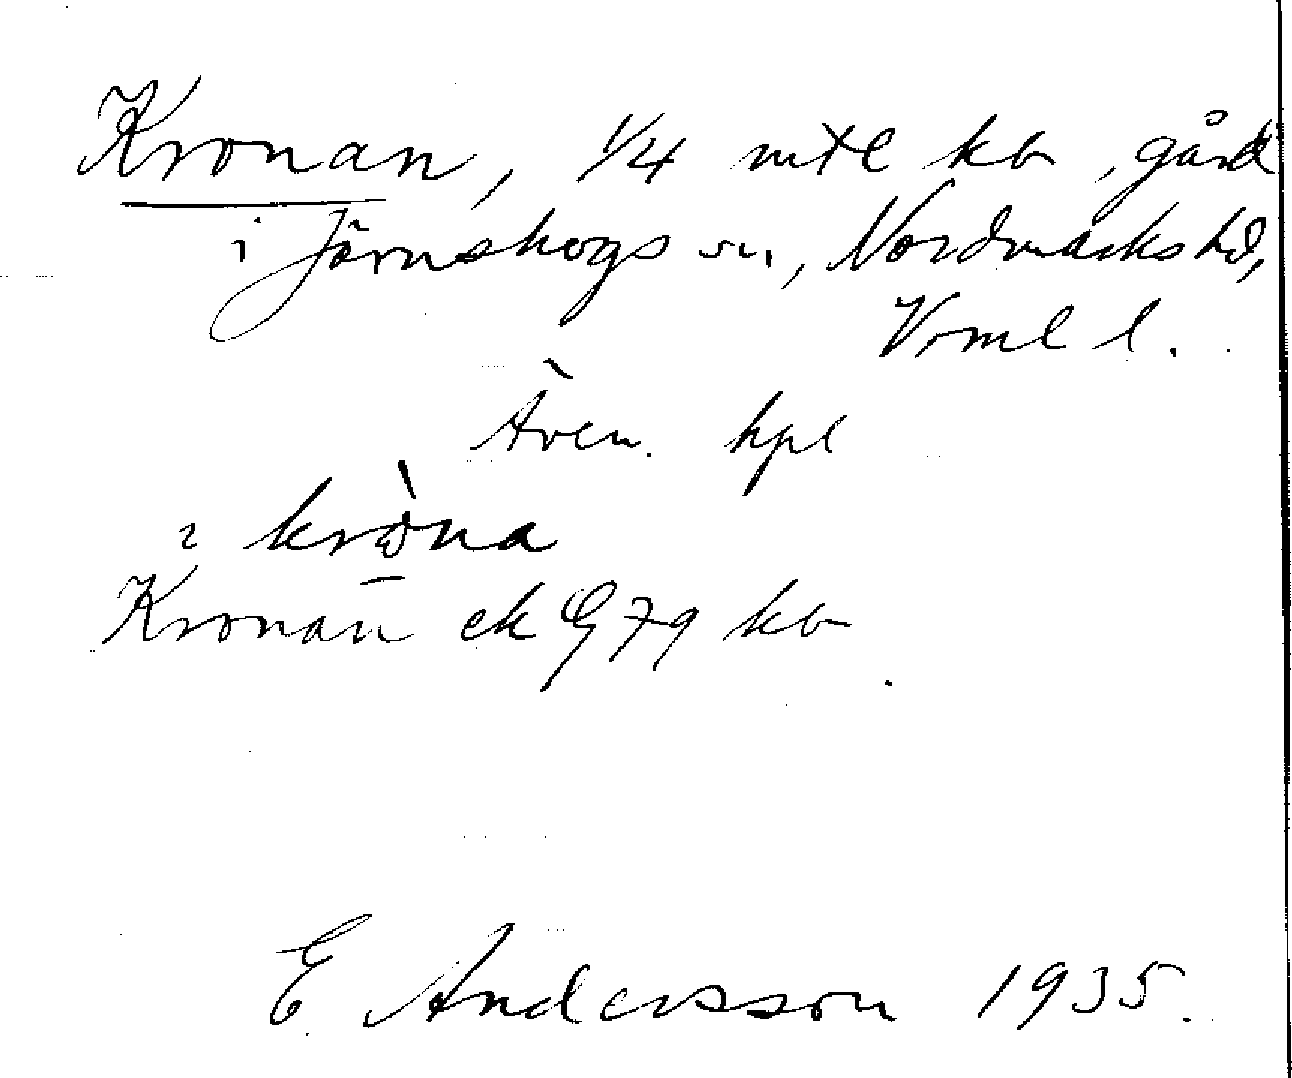 Kronan, 1/4 mtl kb, gård
i Järnskogs sn, Nordmarks hd,
Vrml l.
Även hpl
krò̱na
Kronan ek G 79 kb
E Andersson 1935.